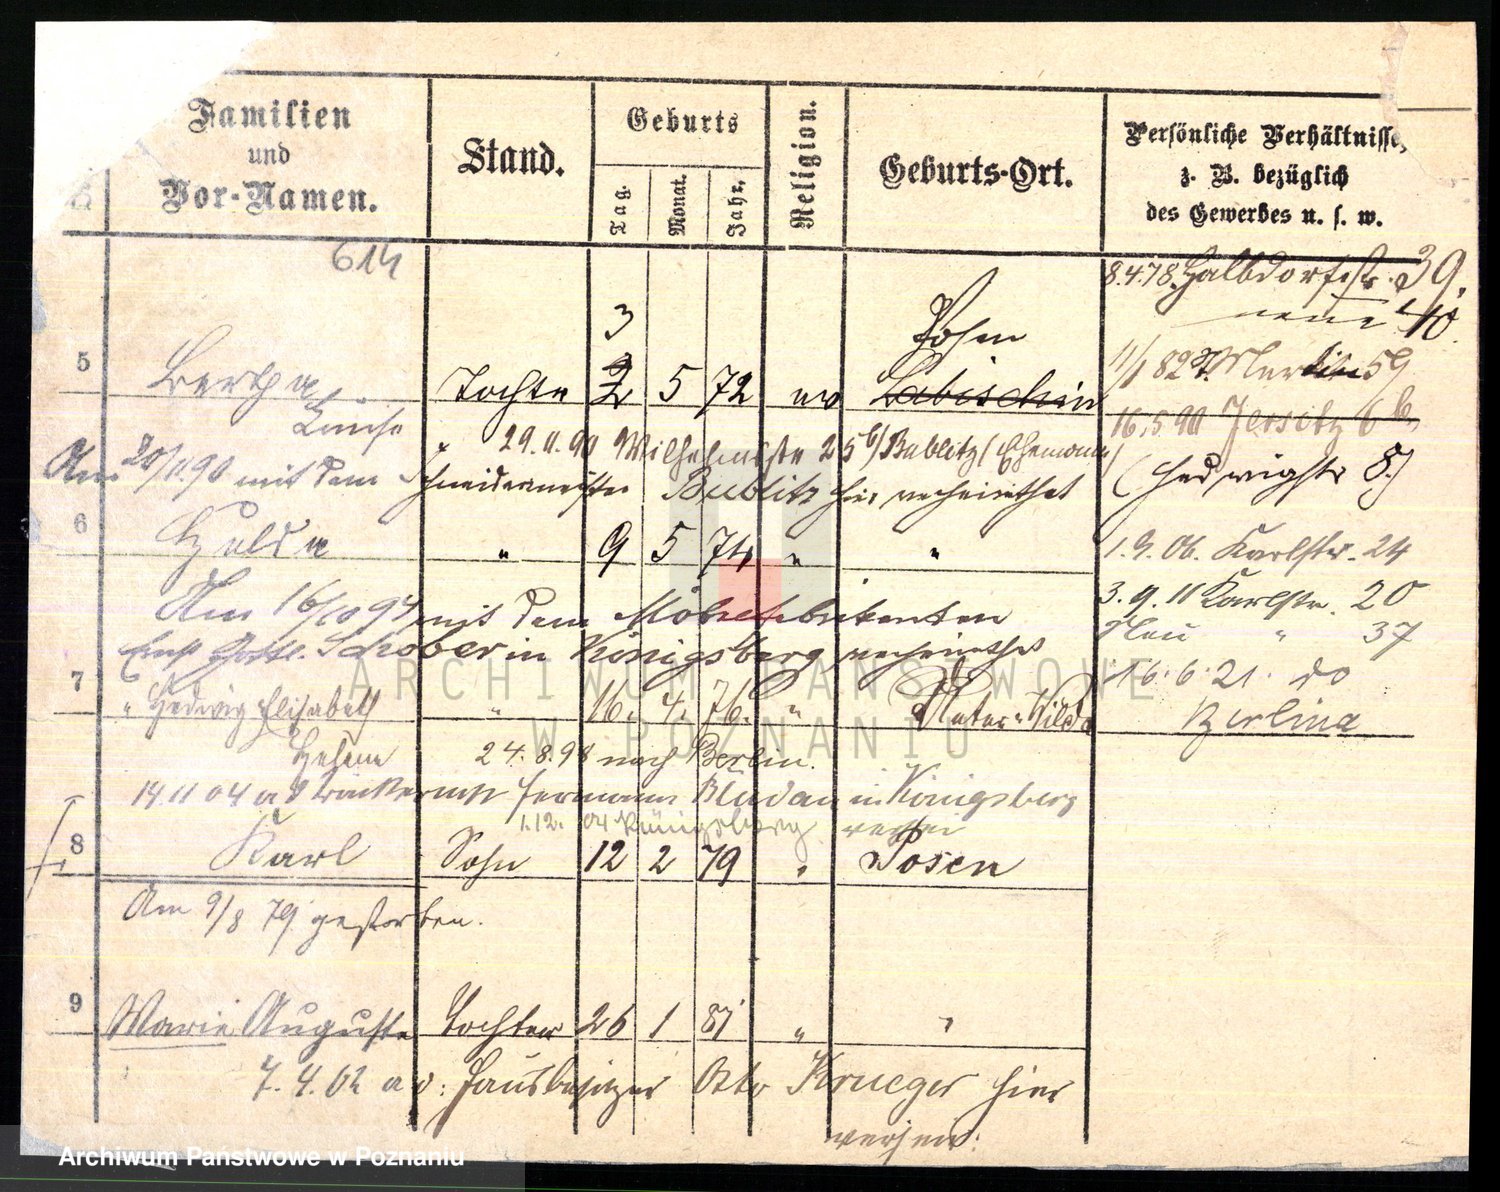 Familien
und
Vor-Namen.
Stand.
Geburts
Tag.
Monat.
Jahr.
Religion.
Geburts-Ort.
Persönliche Verhältnisse,
z. B. bezüglich
des Gewerbes u. s. w.
614
8.4.78. Halbdorfstr. 39.
neue 40
3
Posen
11/1 82 St. Martin 59
5 Bertha Tochter 2 5 72 ev Labischin
Louise
16.5.90 Jersitz 6b
29.11.90 Wilhelmstr 25 b/Bublitz (Ehemann)
Am 20/11.90 mit dem Schneidermeister Bublitz hier verheirathet
(Hedwigstr 8)
6 Hulda " 9 5 74 " "
1.9.06. Karlstr. 24
Am 16/10 94 mit dem Möbelfabrikanten
3.9.11 Karlstr. 20
Schober in Königsberg verheirathet
Neu " 37
16.6.21. do
7 " Hedwig Elisabeth " 16. 4. 76. " Unter-Wilda
Berlina
Helene
24.8.98 nach Berlin.
14.11 04 Hermann Bludau in Königsberg
1.12. 04 Königsberg verhei
8 Karl Sohn 12 2 79 " Posen
Am 9/8 79 gestorben.
9 Marie Auguste Tochter 26 1 81 " "
7.4.02 a. d. Hausbesitzer Otto Krueger hier
verheir.
ARCHIWUM PAŃSTWOWE
W POZNANIU
Archiwum Państwowe w Poznaniu